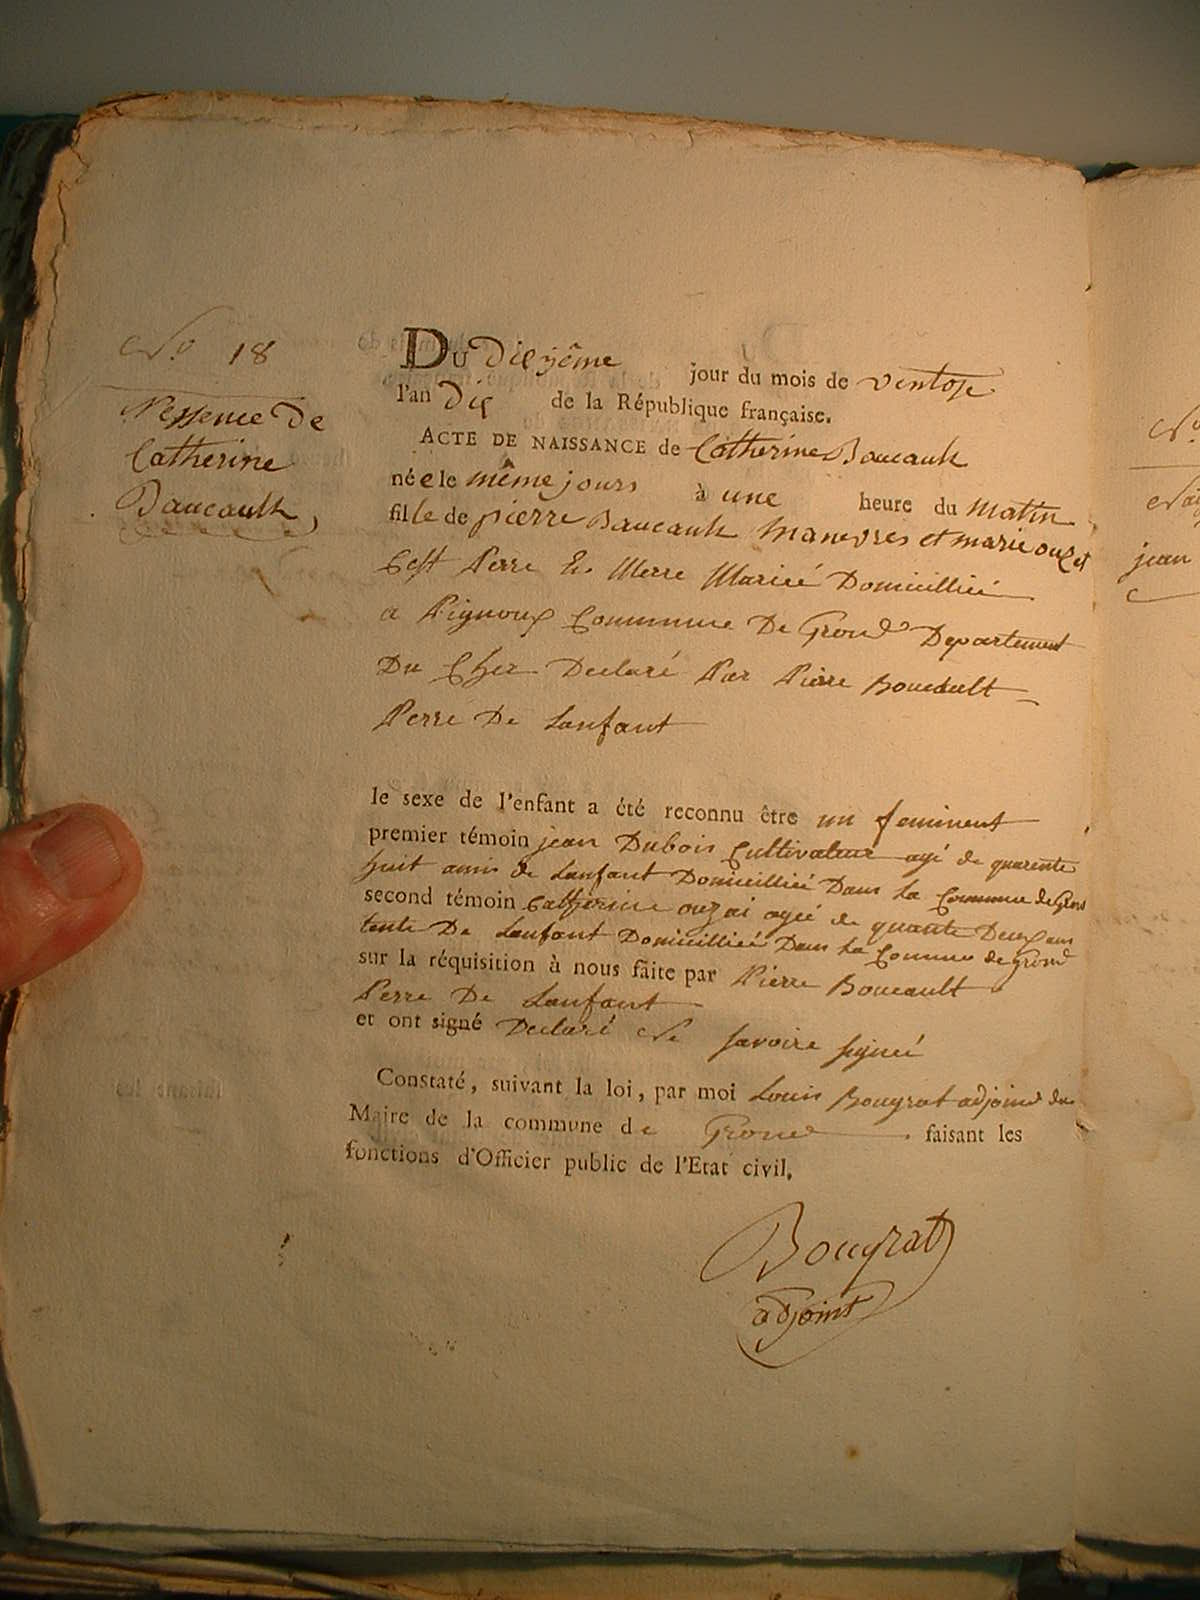 No 18
Nessence De
Catherine
Baucault,
DU Dixjême jour du mois de ventose
l'an Dix de la République française.
ACTE DE NAISSANCE de Catherine Boucault
née le même jours à une heure du Matin
fille de pierre Baucault Manevres et marie ouzet
Cest Perre Et Merre Mariée Domicilliée
a Pignoux Commune De Grond Departement
Du Cher Declaré Par Pierre Boucault
Perre De Lanfant
le sexe de l'enfant a été reconnu être un feminent
premier témoin jean Dubois Cultivateur agé de quarente
huit amis de Lanfant Domicilliée Dans La Commune de Gron
second témoin Catherine ouzai agée de quante Deux ans
tente De Lanfant Domicilliée Dans La Commune de Grond
sur la réquisition à nous faite par Pierre Boucault
Perre De Lanfant
et ont signé Declaré Ne savoire signée
Constaté, suivant la loi, par moi Louis Bougrat adjoint du
Maire de la commune de Grond faisant les
fonctions d'Officier public de l'Etat civil.
Bougrat
adjoint
No
jean